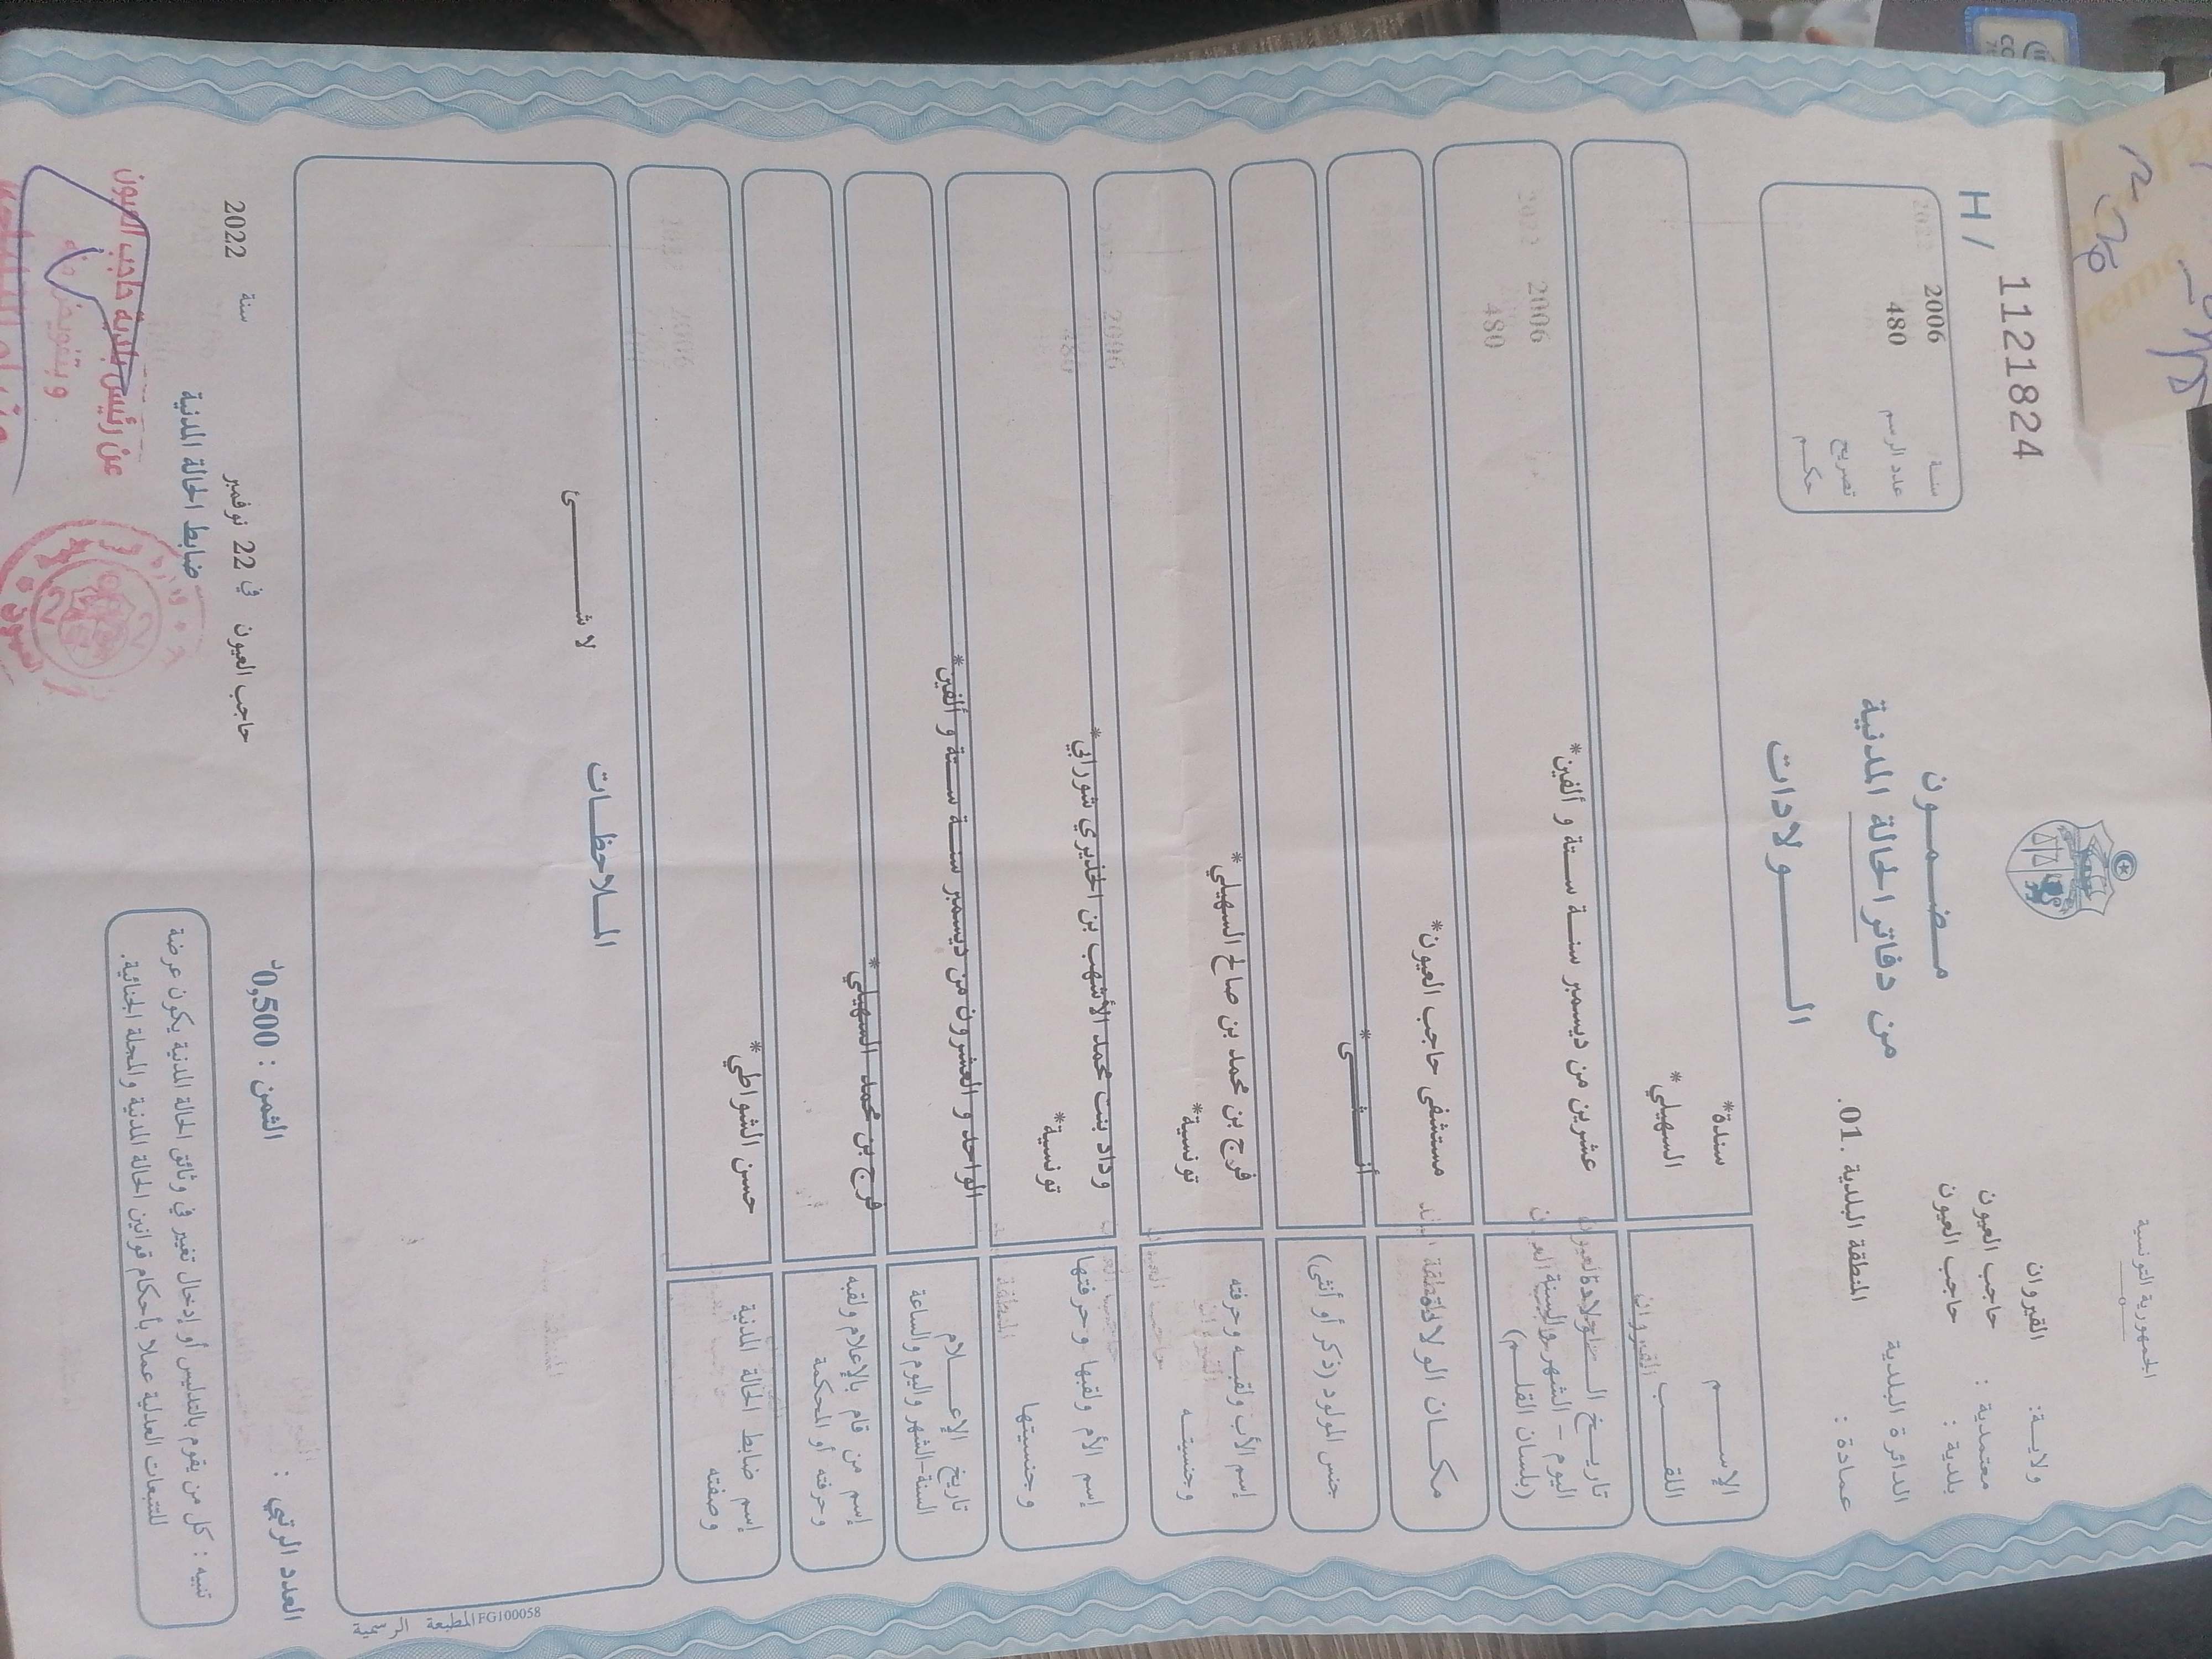 الجمهورية التونسية
ولايـة: القيروان
معتمدية : حاجب العيون
بلدية : حاجب العيون
الدائرة البلدية
المنطقة البلدية .01.
عمادة :
مـضـمـون
من دفاتر الحالة المدنية
الـولادات
H / 11218​24
سنـة 2006
عدد الرسم 480
تصريح
حكـم
الإسـم سندة*
اللقـب السهيلي*
تاريـخ الـولادة
اليوم - الشهر والسنة
(بلسان القلـم)
عشرين من ديسمبر سنـة ستة و ألفين*
مكـان الولادة مستشفى حاجب العيون*
جنس المولود (ذكر أو أنثى) أنـثـى*
إسم الأب ولقبـه وحرفته فرج بن محمد بن صالح السهيلي*
وجنسيتـه تونسية*
إسم الأم ولقبها وحرفتها وداد بنت محمد الأشهب بن الخذيري شورابي*
وجنسيتها تونسية*
تاريخ الإعـلام
السنة-الشهر واليوم والساعة
الواحد و العشرون من ديسمبر سنـة ستة و ألفين*
إسم من قام بالإعلام ولقبه
وحرفته أو المحكمة
فرج بن محمد السهيلي*
إسم ضابط الحالة المدنية
وصفته
حسن الشواطي*
المـلاحظـات
لا شـئ
المطبعة الرسمية FG100058
العدد الرتبي :
الثمن : 0,500د
حاجب العيون في 22 نوفمبر سنة 2022
ضابط الحالة المدنية
عن رئيس بلدية حاجب العيون
وبتفويض منه
تنبيه : كل من يقوم بالتدليس أو إدخال تغيير في وثائق الحالة المدنية يكون عرضة
للتتبعات العدلية عملا بأحكام قوانين الحالة المدنية والمجلة الجنائية.